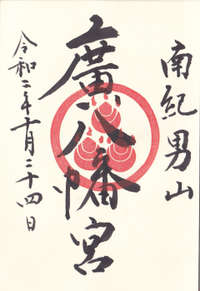 南紀男山
廣八幡宮
令和二年十月二十四日